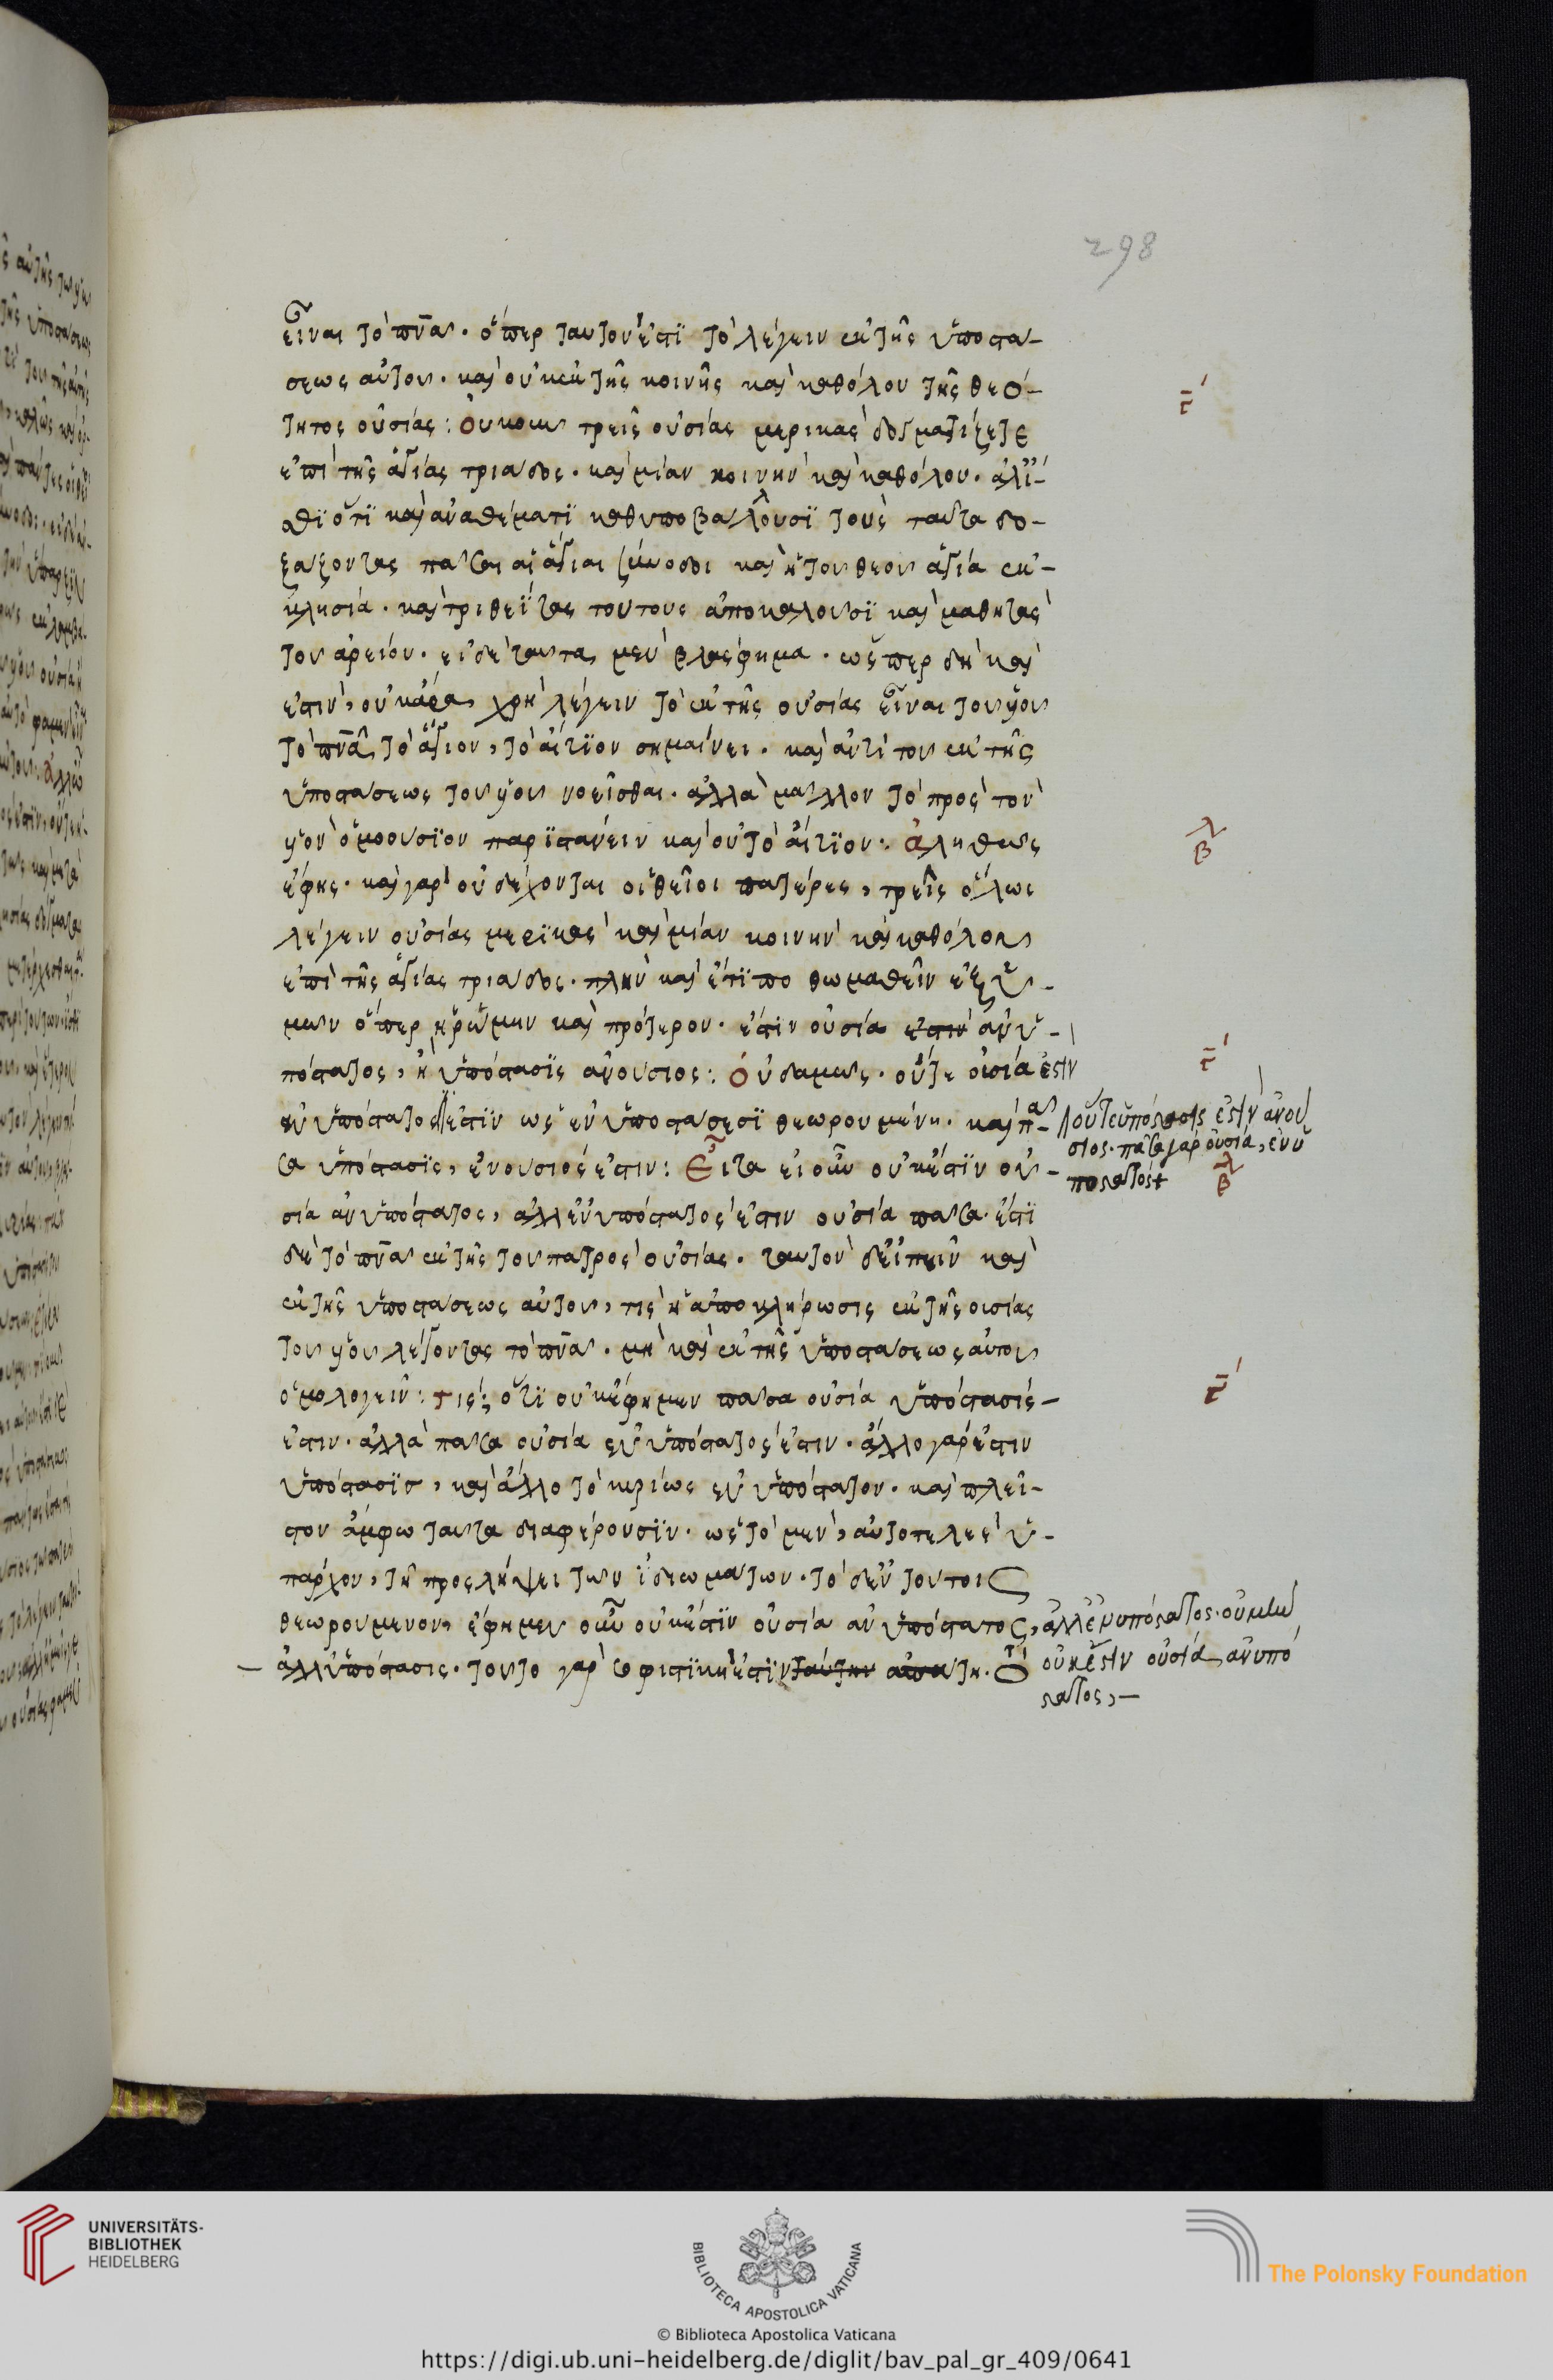 298
εἶναι τὸ πν̅α. ὅπερ ταυτὸν ἐστὶ τὸ λέγειν ἐκ τῆς ὑποστά-
σεως αὐτοῦ. καὶ οὐκ ἐκ τῆς κοινῆς καὶ καθόλου τῆς θεό-
τητος οὐσίας: Οὐκοῦν τρεῖς οὐσίας μερικὰς δογματίζετε
ἐπὶ τῆς ἁγίας τριάδος. καὶ μίαν κοινὴν καὶ καθόλου.
ὅτι καὶ ἀναθέματι καθυποβάλλουσι τοὺς ταῦτα δο-
ξάζοντας πᾶσαι αἱ ἅγιαι σύνοδοι καὶ ἡ τοῦ θεοῦ ἁγία ἐκ-
κλησία. καὶ τριθεΐτας τούτους ἀποκαλοῦσι καὶ μαθητὰς
τοῦ ἀρείου. εἰ δὲ ταῦτα μὲν βλάσφημα. ὥσπερ δὴ καὶ
ἐστιν, οὐκ ἄρα χρὴ λέγειν τὸ ἐκ τῆς οὐσίας εἶναι τοῦ υἱοῦ
τὸ πν̅α τὸ ἅγιον, τὸ αἴτιον σημαίνει. καὶ ἀντὶ τοῦ ἐκ τῆς
ὑποστάσεως τοῦ υἱοῦ νοεῖσθαι. ἀλλὰ μᾶλλον τὸ πρὸς τὸν
υἱὸν ὁμοούσιον παριστάνειν καὶ οὐ τὸ αἴτιον: Ἀληθῶς
ἔφης. καὶ γὰρ οὐ δέχονται οἱ θεῖοι πατέρες, τρεῖς ὅλως
λέγειν οὐσίας μερικὰς καὶ μίαν κοινὴν καὶ καθόλου
ἐπὶ τῆς ἁγίας τριάδος. πλὴν καὶ ἔτι ποθῶ μαθεῖν ἐξ ὑ-
μῶν ὅπερ ἠρώμην καὶ πρότερον. ἔστιν οὐσία ἀνυ-
πόστατος, ἢ ὑπόστασις ἀνούσιος: Οὐδαμῶς. οὔτε οὐσία ἐστὶν
ἐνυπόστατός ἐστιν ὡς ἐν ὑποστάσεσι θεωρουμένη. καὶ πᾶ-
σα ὑπόστασις, ἐνούσιός ἐστιν: Εἶτα εἰ οὖν οὐκ ἔστιν οὐ-
σία ἀνυπόστατος, ἀλλ' ἐνυπόστατός ἐστιν οὐσία πᾶσα. ἔστι
δὲ τὸ πν̅α ἐκ τῆς τοῦ πατρὸς οὐσίας. ταυτὸν δ' εἰπεῖν καὶ
ἐκ τῆς ὑποστάσεως αὐτοῦ, τίς ἡ ἀποκλήρωσις ἐκ τῆς οὐσίας
τοῦ υἱοῦ λέγοντας τὸ πν̅α. μὴ καὶ ἐκ τῆς ὑποστάσεως αὐτοῦ
ὁμολογεῖν: τίς; ὅτι οὐκ ἔφημεν πᾶσα οὐσία ὑπόστασίς-
ἐστιν. ἀλλὰ πᾶσα οὐσία ἐνυπόστατός ἐστιν. ἄλλο γάρ ἐστιν
ὑπόστασις, καὶ ἄλλο τὸ κυρίως ἐνυπόστατον. καὶ πλεῖ-
στον ἄμφω ταῦτα διαφέρουσιν. ὡς τὸ μὲν, αὐτοτελὲς ὑ-
πάρχον, τῇ προσλήψει τῶν ἰδιωμάτων. τὸ δ' ἐν τούτοις
θεωρούμενον, ἔφημεν οὖν οὐκ ἔστιν οὐσία ἀνυπόστατος,
ἀλλ' ὑπόστασις. τοῦτο γὰρ σοφιστικὴ ἐστὶν
τ̅
λ
β
τ̅
οὔτε ὑπόστασις ἐστὶν ἀνού
σιος. πᾶσα γὰρ οὐσία, ἐνυ
πόστατός+
λ
β
τ̅
ἀλλ' ἐνυπόστατος. οὐ μὴν
οὐκ ἔστιν οὐσία, ἀνυπό
στατος,-
UNIVERSITÄTS-
BIBLIOTHEK
HEIDELBERG
BIBLIOTECA APOSTOLICA VATICANA
The Polonsky Foundation
© Biblioteca Apostolica Vaticana
https://digi.ub.uni-heidelberg.de/diglit/bav_pal_gr_409/0641